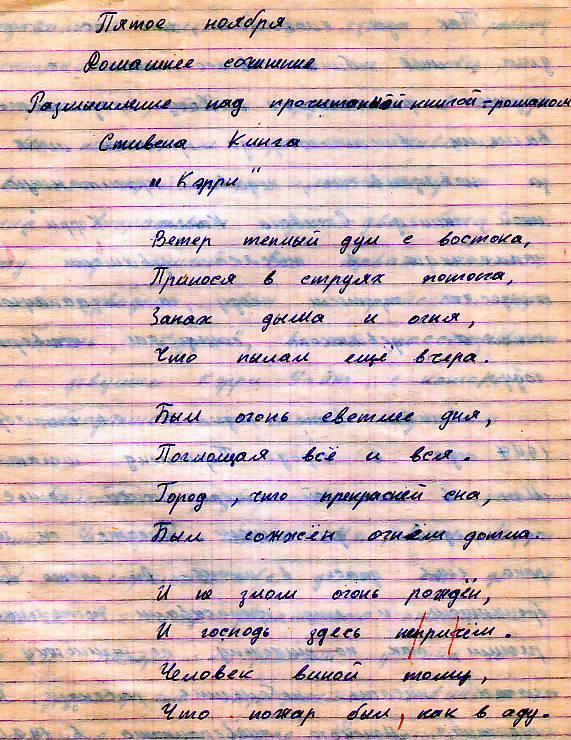 Пятое ноября.
Домашнее сочинение
Размышление над прочитанной книгой-романом
Стивена Кинга
"Кэрри"
Ветер теплый дул с востока,
Принося в струях потока,
Запах дыма и огня,
Что пылал ещё вчера.
Был огонь светлее дня,
Поглощая всё и вся.
Город, что прекрасней сна,
Был сожжён огнём дотла.
И не злом огонь рождён,
И господь здесь непричём.
Человек виной тому,
Что пожар был, как в аду.